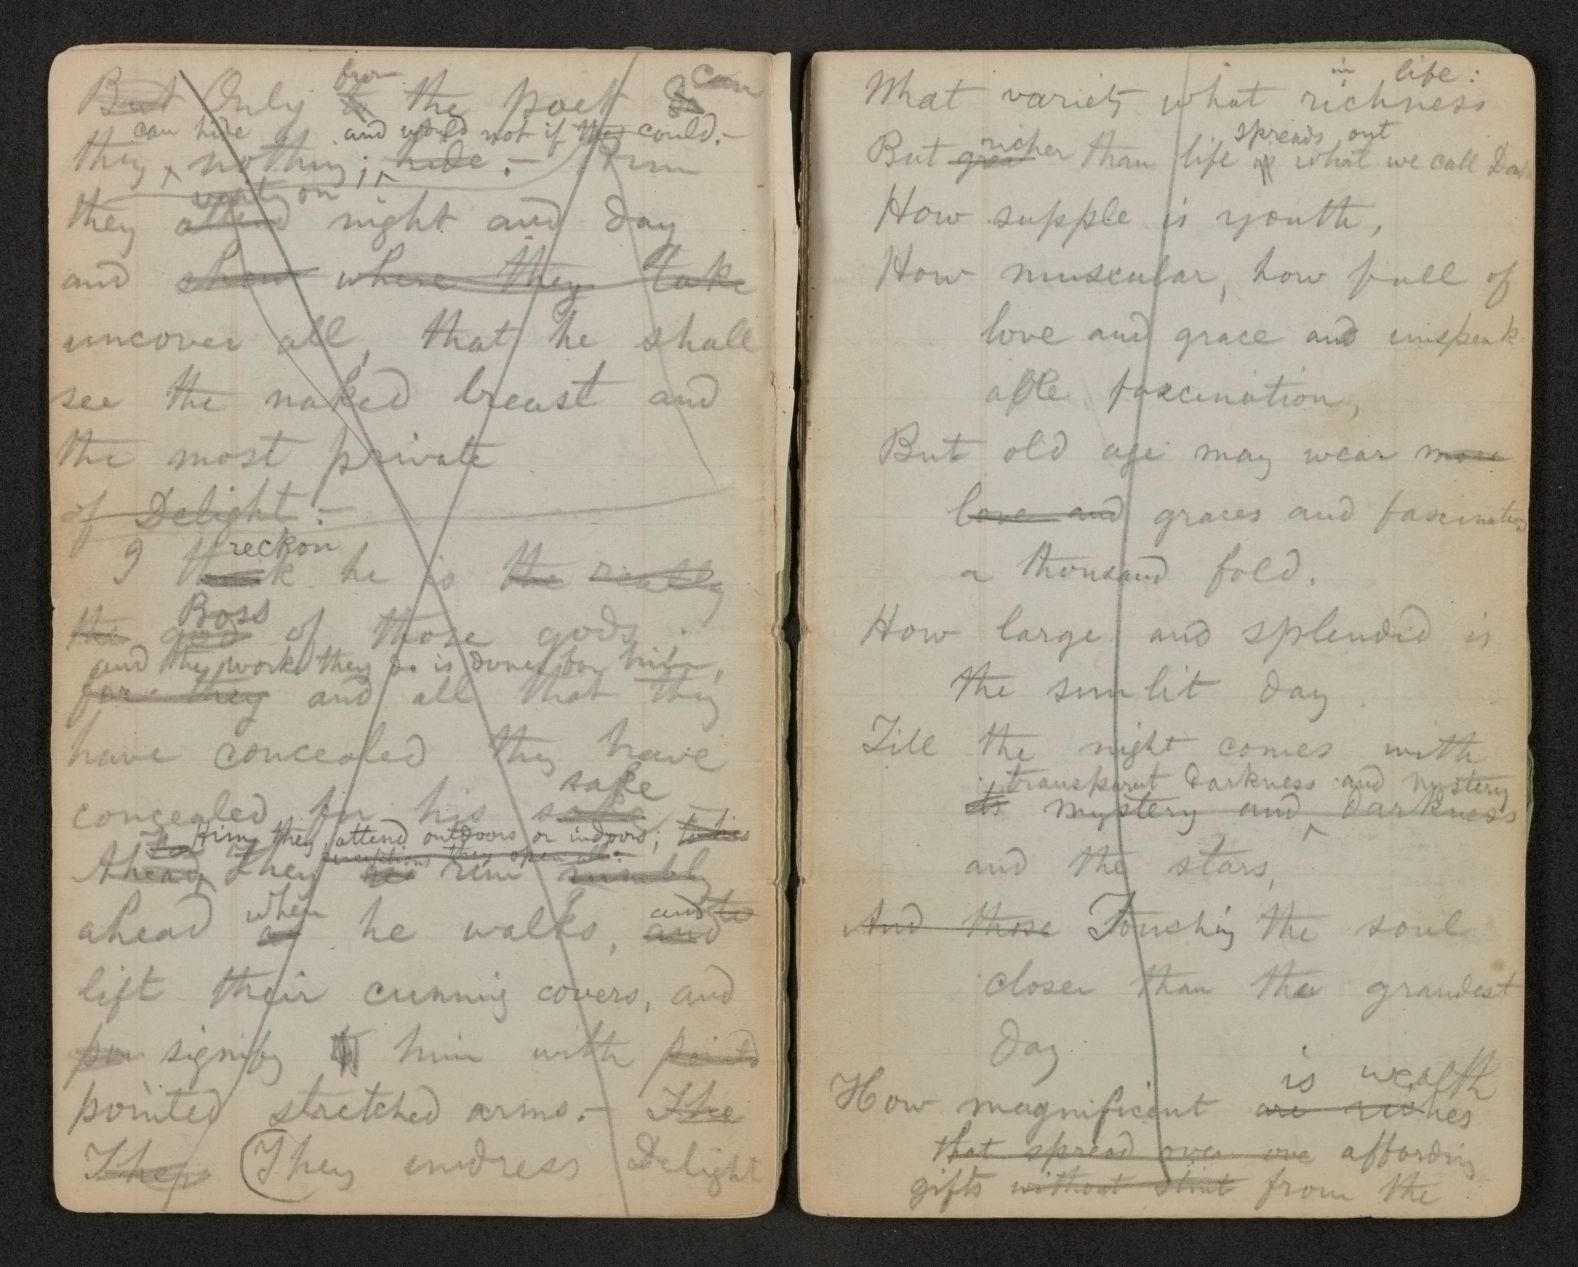 from can
But Only to the poet
can hide and would not if they could.—
they nothing; hide.— Him
wait on
they attend night and day
and show where they take
uncover all, that he shall
see the naked breast and
the most private
of Delight.—
reckon
I think he is the really
Boss
the god of those gods.
and the work they do is done for him,
for they and all that they
have concealed they have
sake
concealed for his sake
Him they attend outdoors or indoors;
perceptions they open all.—
Ahead, They run nimbly
when and to
ahead as he walks, and
lift their cunning covers, and
signify him with points
pointed stretched arms.— The
They (They undress Delight
in life:
What variety what richness
richer spreads out
But than life is what we call Death
How supple is youth,
How muscular, how full of
love and grace and unspeak-
able fascination,
But old age may wear more
love and graces and fascination
a thousand fold.
How large and splendid is
the sunlit day
Till the night comes with
transparent darkness and mystery
its mystery and darkness
and the stars,
And those Touching the soul
closer than the grandest
day
is wealth
How magnificent are riches
that spread over affording
gifts without stint from the